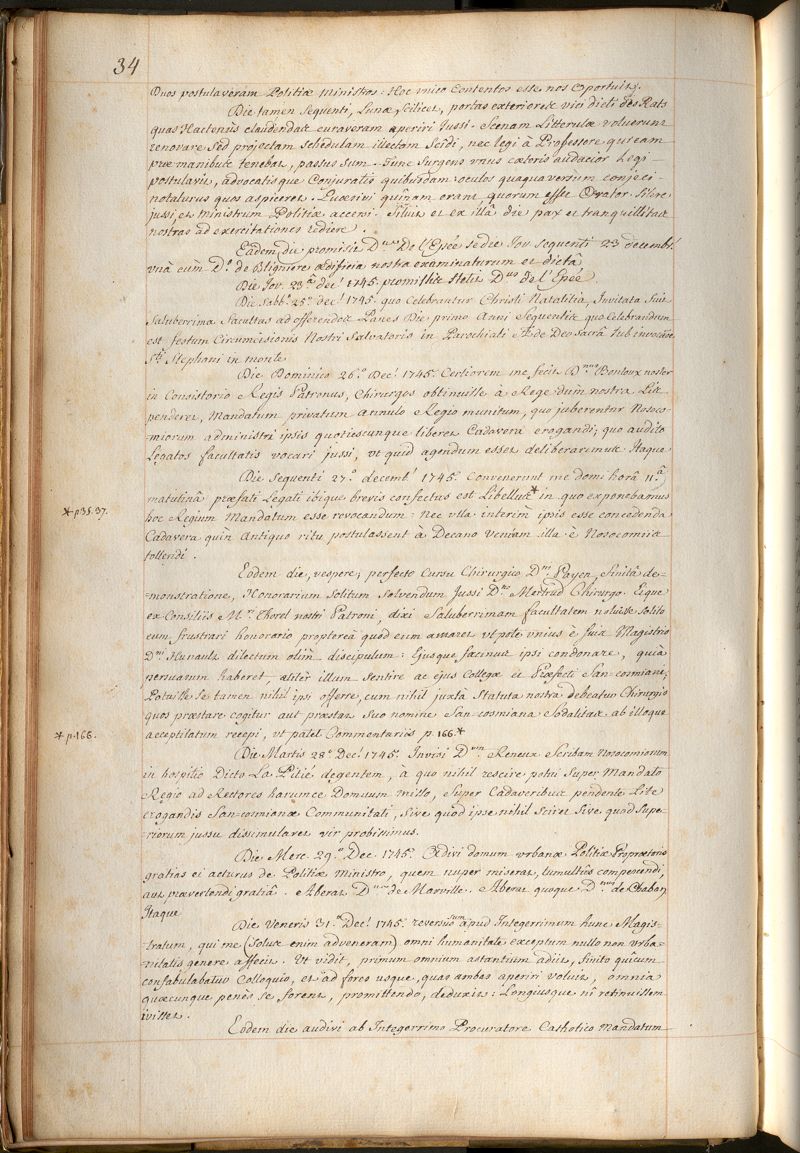 34
Duos postulaveram Politiæ Ministros: Hoc unico Contentos esse nos Oportuit.
Die tamen Sequenti, Lunæ scilicet, portas exteriores vici dicti des Rats
quas Hactenùs claudendas curaveram aperiri Jussi. Scenam Litterulæ voluerunt
renovare sed projectam schedulam illectam Scidi, nec legi à Professore qui eam
præ manibus tenebat, passus sum. Tunc Surgens unus cæteris audacior Legi
postulavit, advocatisque Conjuratis quibusdam: oculos quaquaversùm conjeci
notaturus quos aspiceret. Exquisivi quinam erant quorum esset Orator. Silere
jussi, et ministrum Politiæ accersi. Siluit et ex illâ die pax et tranquillitas
nostras ad exercitationes rediere.
Eâdem die promisit D.nus De l'Epée se die Jov. sequenti 23 decembr.
unà cùm D.o de Bligniere ædificia nostra examinaturum et dictâ
Die Jov. 23.â dec.! 1745. promissis stetit D.nus de l'Epée.
Die Sabb. 25.â dec.! 1745. quo Celebrantur Christi Natalitia, Invitata fuit
Saluberrima Facultas ad offerendos Panes Die primo Anni Sequentis quo Celebrandum
est festum Circumcisionis Nostri Salvatoris in Parochiali Æde Deo Sacrâ sub invocâõe
S.ti Stephani in monte
Die Dominico 26.â Dec.! 1745. Certiorem me fecit D.nus Bouloux noster
in Consistorio Regis Patronus, Chirurgos obtinuisse à Rege dùm nostra Lis
penderet, Mandatum privatum annulo Regio munitum, quo juberentur Nosoco-
miorum administri ipsis quotiescunque liberet Cadavera erogandi; quo audito
Legatos facultatis vocari jussi, ut quid agendum esset deliberaremus Itaque
Die Sequenti 27.â decemb.! 1745. Convenerunt me domi horâ 11.â
matutinâ præfati Legati ibique brevis confectus est Libellus* in quo exponebamus
* p35.37.
hoc Regium Mandatum esse revocandum: Nec ulla interim ipsis esse concedenda
Cadavera quin Antiquo ritu postulassent à Decano Veniam illa è Nosocomiis
tollendi.
Eodem die, vespere, perfecto Cursu Chirurgico D.ni Payen, finitâ de-
=monstratione, Honorarium Solitum Solvendum Jussi D.no Mertrud Chirurgo. Eique
ex Consiliis M.ri Thorel nostri Patroni, dixi Saluberrimam facultatem noluisse Solito
eum frustrari honorario proptereà quòd eum amaret utpotè unius è suis Magistris
D.ni Hunauld dilectum olim discipulum: Ejusque facinus ipsi condonare, quià
persuasum haberet, aliter illum sentire ac ejus Collegæ et Præfecti San-cosmiani;
Potuisse se tamen nihil ipsi offerre, cum nihil juxtà Statuta nostra debeatur Chirurgis
quos præstare cogitur aut præstat Suo nomine San-cosmiana Sodalitas ab illoque
acceptilatum recepi, ut patet Commentariis p. 166.*
* p.166.
Die Martis 28.â Dec.! 1745. Invisi D.num Reneux Scribam Nosocomiorum
in hospitio Dicto La Pitié degentem, à quo nihil rescire potui Super Mandato
Regio ad Rectores harumce Domuum misso, super Cadaveribus pendente Lite
erogandis San-cosmianæ Communitati, Sive quòd ipse nihil sciret Sive quòd Supe-
riorum jussu dissimularet vir probissimus.
Die Merc. 29.â Dec. 1745. Adivi domum urbanæ Politiæ Proprætoris
gratias ei acturus de Politiæ ministro, quem nuper miserat, tumultûs compescendi,
aut prævertendi gratiâ. Aberat D.nus de Marville. Aberat quoque D.nus de Chaban
Itaque
Die Veneris 31.â Dec.! 1745. reversus sum apud Integerrimum hunc Magis-
tratum, qui me (Solus enim adveneram) omni humanitate exceptum nullo non urba-
=nitatis genere affecit. Ut vidit, primum omnium astantium adiit, finito quîcum
confabulabatur Colloquio, et ad fores usque, quas ambas aperiri voluit, omnia
quæcunque penès se forent, promittendo, deduxit: Longiusque nî retinuissem
ivisset.
Eodem die audivi ab Integerrimo Procuratore Catholico Mandatum